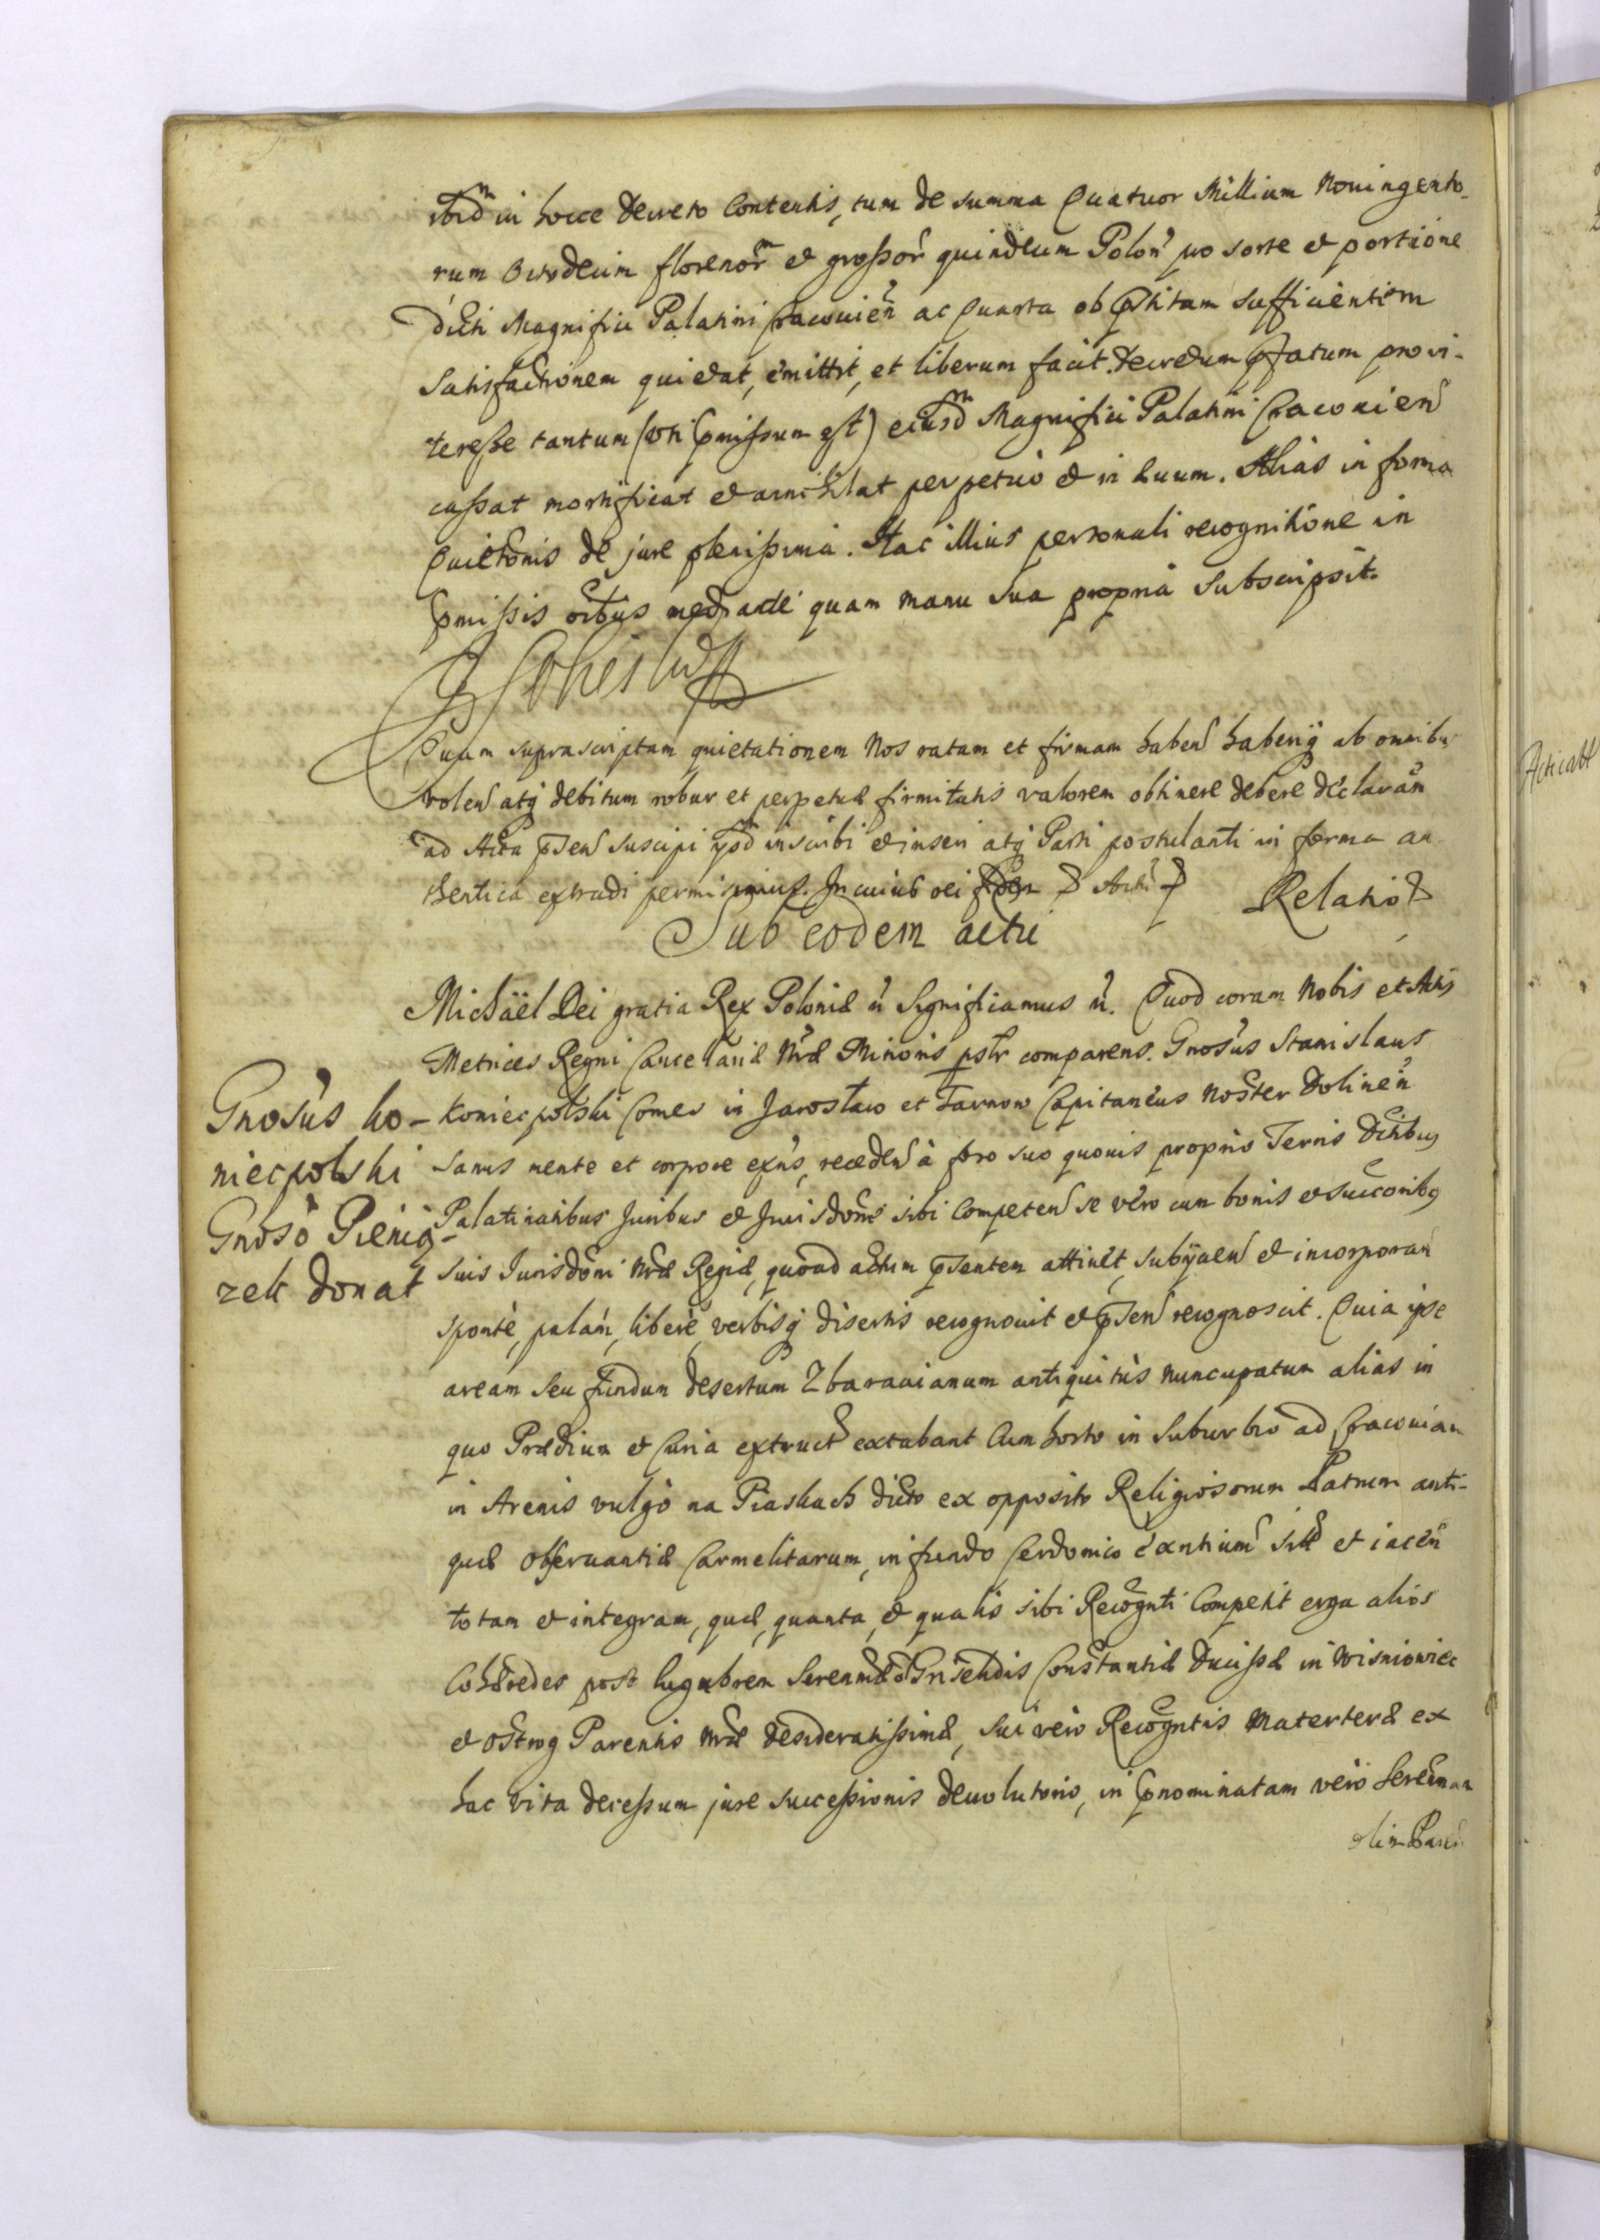 ibidem in hocce Decreto Contentis, tum de summa Quatuor Millium Noningento-
rum Octodecim florenor et grossor quindecim Polon pro sorte et portione
dicti Magnifici Palatini Cracouien ac quarta ob pstitam sufficientem
Satisfactionem quietat, emittit, et liberum facit. Decretum pfatum pro in-
teresse tantum (vti pmissum est) eiusdm Magnifici Palatini Cracouien
cassat mortificat et annihilat perpetuò et in æuum. Alias in forma
Quietonis de jure plenissima. Hac illius personali recognitione in
pmissis oibus mediante quam manu sua propria subscripsit.
Quam suprascriptam quietationem Nos ratam et firmam haben haberiq ab omnibus
volen atq debitum robur et perpetuæ firmitatis valorem obtinere debere declaran
ad Acta psen suscipi ipsdm inscribi et inseri atq Parti postulanti in forma au
thentica extradi permisimus. In cuius rei fidem Relatio
Sub eodem actu
Michaël Dei gratia Rex Poloniæ Significamus. Quod coram Nobis et Actis
Metrices Regni Cancellariæ Nræ Minoris pslr comparens. Gnosus Stanislaus
Koniecpolski Comes in Jarosław et Tarnow Capitaneus Noster Dolinen
Gnosus Ko-
niecpolski
Gnoso Pienią-
zek donat
sanus mente et corpore exns, receden à foro suo quouis proprio Terris Dctibus
Palatinatibus Juribus et Jurisdone sibi competen se vero cum bonis et succoribq
suis Jurisdoni Nræ Regiæ, quoad actum psentem attinet, subijcen et incorporan
sponte, palam, libere, verbisq disertis recognouit et psen recognoscit. Quia ipse
aream seu fundum desertum Zbaraianum antiquitùs nuncupatum alias in
quo Prædium et Curia extruct extabant Cum horto in Suburbio ad Cracouiam
in Arenis vulgò na Piaskach dicto ex opposito Religiosorum Patrum anti-
quæ obseruantiæ Carmelitarum, in fundo Cerdonico extantium sit et iacen
totam et integram, quæ, quanta, et qualis sibi Recognti Competit erga alios
Cohæredes post lugubrem Serenmæ Griseldis Constantiæ Ducissæ in Wisniowiec
et Ostrog Parentis Nræ desideratissimæ, sui vero Recogntis Materteræ ex
hac vita decessum jure successionis deuolutorio, in pnominatam verò Serenman
olim Paren
Acticatt